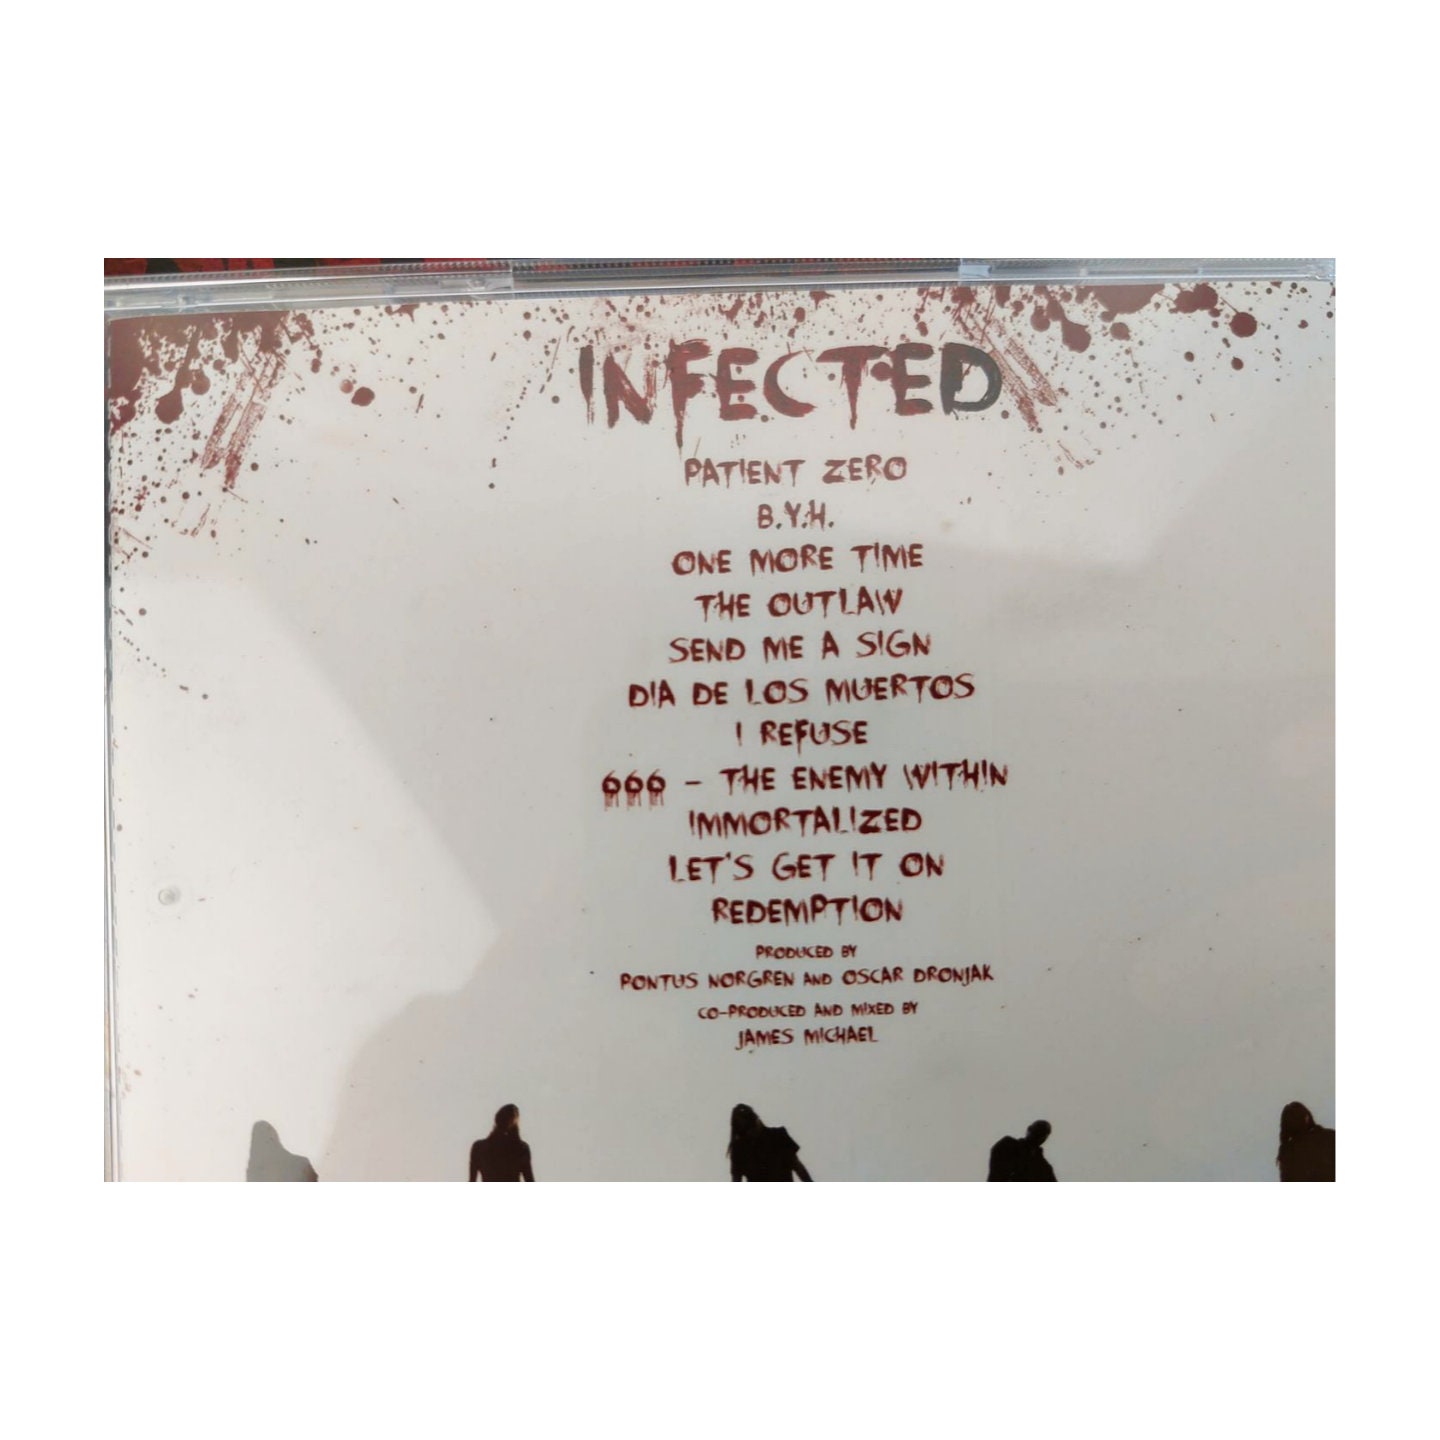 INFECTED
PATIENT ZERO
B.Y.H.
ONE MORE TIME
THE OUTLAW
SEND ME A SIGN
DIA DE LOS MUERTOS
I REFUSE
666 - THE ENEMY WITHIN
IMMORTALIZED
LET'S GET IT ON
REDEMPTION
PRODUCED BY
PONTUS NORGREN AND OSCAR DRONJAK
CO-PRODUCED AND MIXED BY
JAMES MICHAEL